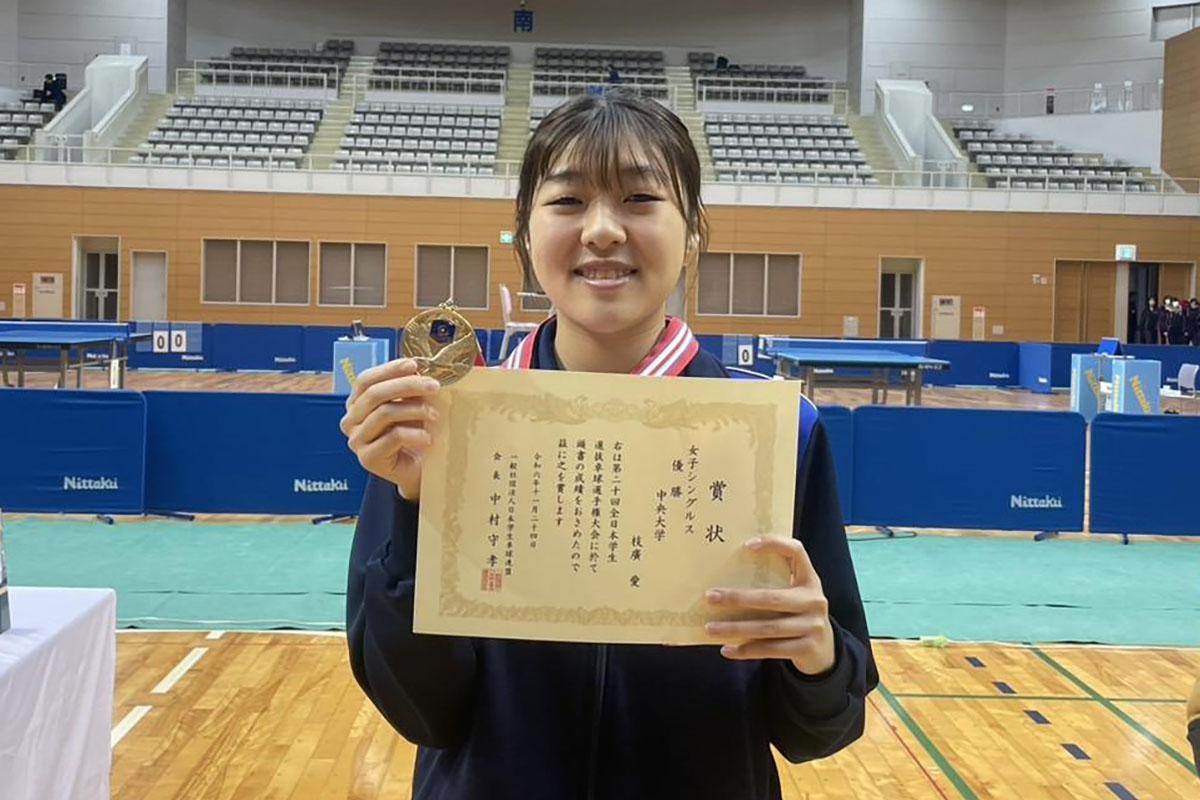 南
0 0
0
Nittaku
Nittaku
Nittaku
Nittaku
Nittaku
賞状
女子シングルス
優勝
中央大学
枝廣 愛
右は第二十回全日本学生
選抜卓球選手権大会に於て
頭書の成績をおさめたので
茲に之を賞します
令和六年十一月二十四日
一般社団法人日本学生卓球連盟
会長 中村守孝